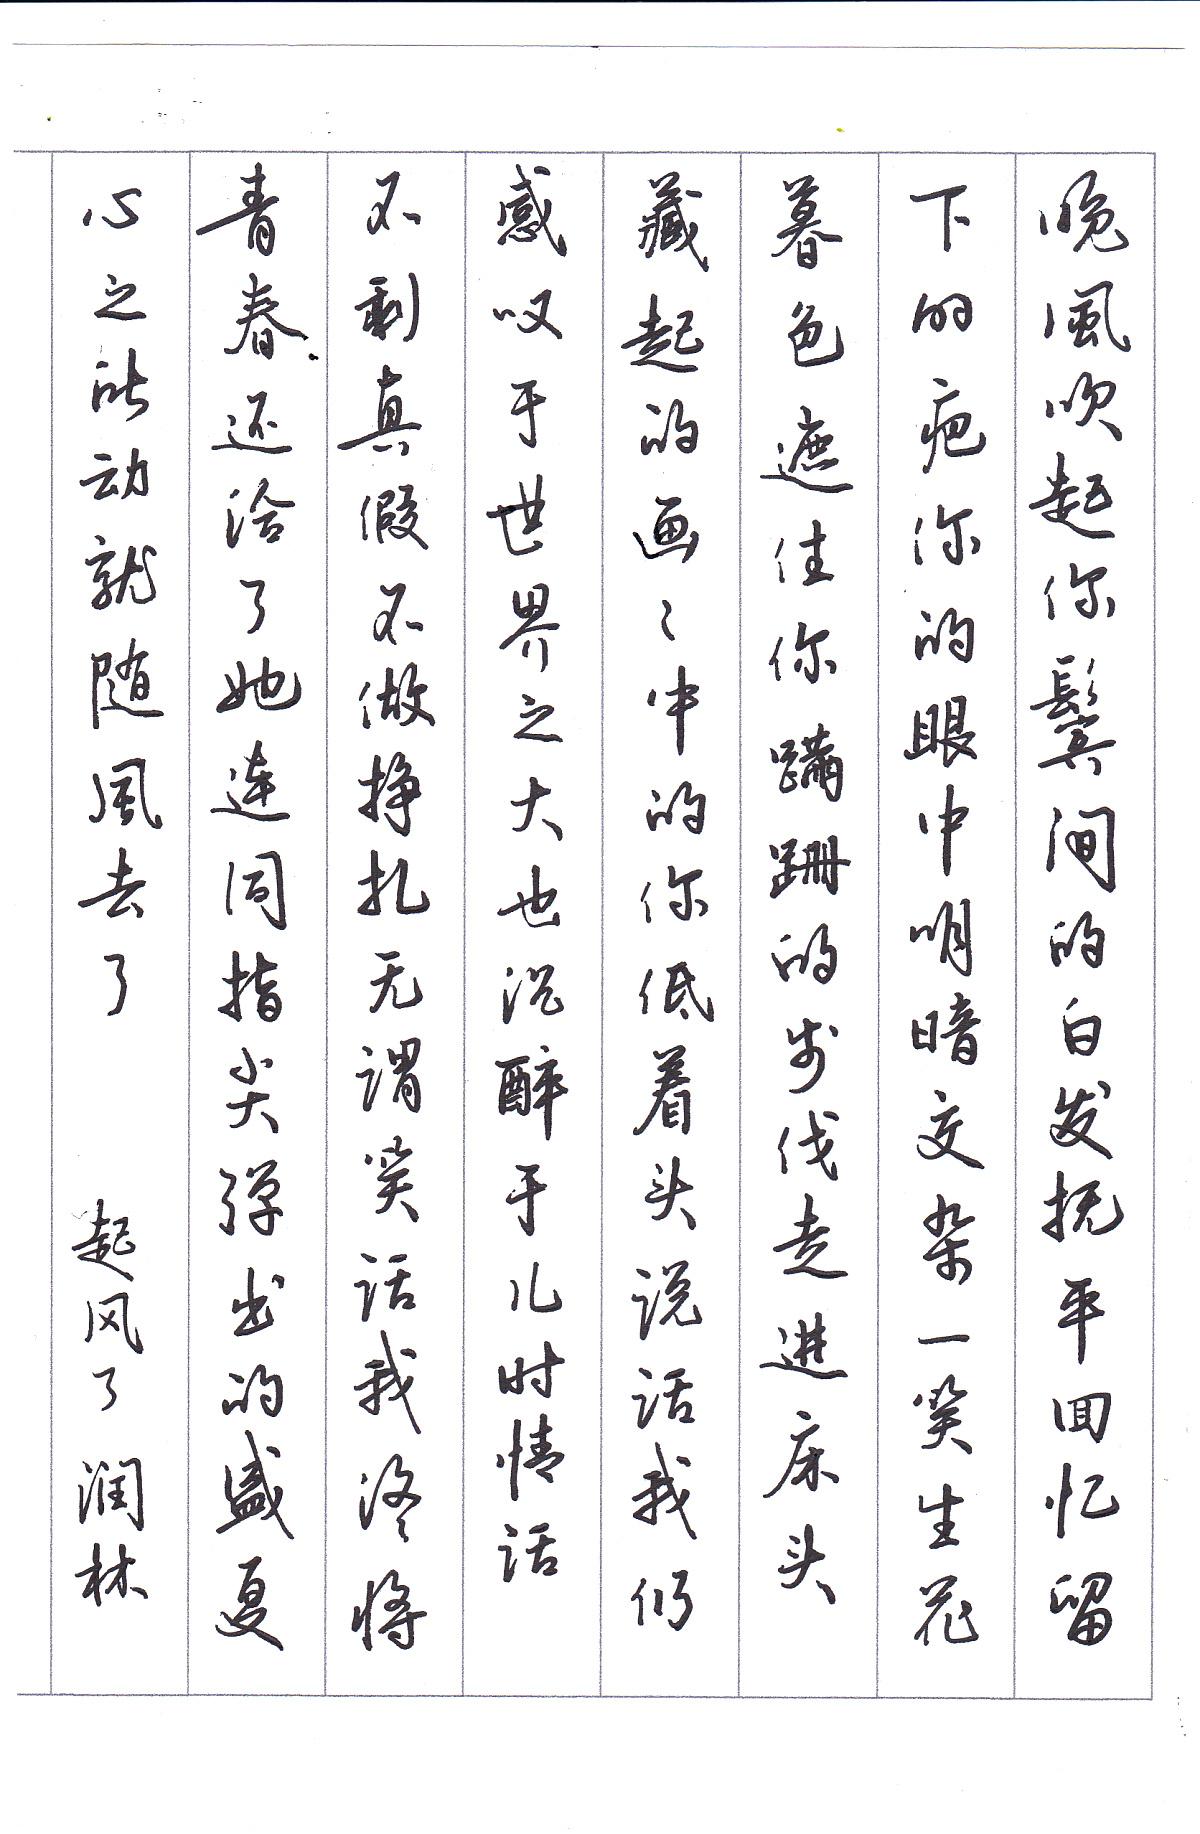 晚風吹起你鬓间的白发抚平回忆留
下的疤你的眼中明暗交杂一笑生花
暮色遮住你蹒跚的步伐走进床头
藏起的画〻中的你低着头说话我仍
感叹于世界之大也沉醉于儿时情话
不剩真假不做挣扎无谓笑话我终将
青春还给了她连同指尖弹出的盛夏
心之所动就随風去了 起风了 润林